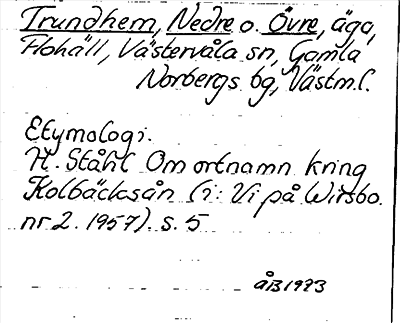 Trundhem, Nedre o. Övre, ägo,
Flohäll, Västervåla sn, Gamla
Norbergs bg, Västm.l.
Etymologi.
H. Ståhl Om ortnamn kring
Kolbäcksån (i: Vi på Wirsbo.
nr 2. 1957). s. 5
åB 1973